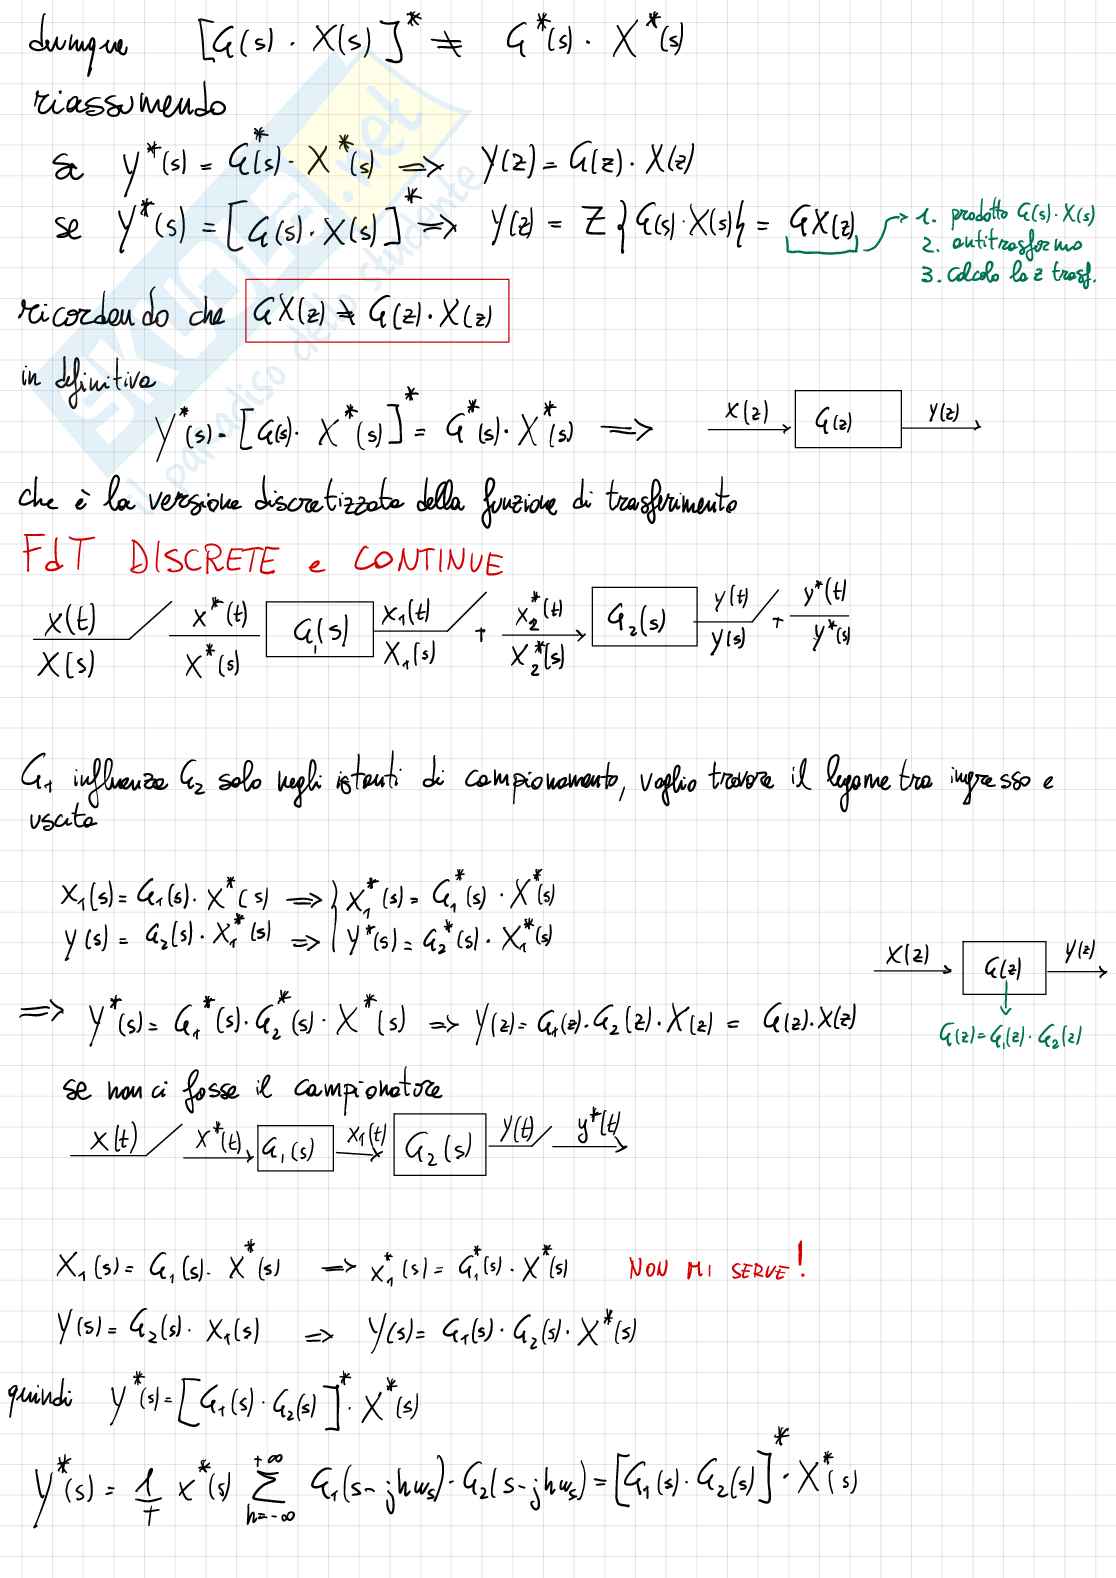 dunque [G(s) · X(s)]* ≠ G*(s) · X*(s)
riassumendo
se Y*(s) = G*(s) · X*(s) => Y(z) = G(z) · X(z)
se Y*(s) = [G(s) · X(s)]* => Y(z) = Z{G(s) · X(s)} = GX(z)
1. prodotto G(s) · X(s)
2. antitrasformo
3. calcolo la z trasf.
ricordando che GX(z) ≠ G(z) · X(z)
in definitiva
Y*(s) = [G(s) · X*(s)]* = G*(s) · X*(s) => X(z) G(z) Y(z)
che è la versione discretizzata della funzione di trasferimento
FdT DISCRETE e CONTINUE
x(t) x*(t) G₁(s) x₁(t) T x₂*(t) G₂(s) y(t) T y*(t)
X(s) X*(s) X₁(s) X₂*(s) Y(s) Y*(s)
G₁ influenza G₂ solo negli istanti di campionamento, voglio trovare il legame tra ingresso e
uscita
X₁(s) = G₁(s) · X*(s) => { X₁*(s) = G₁*(s) · X*(s)
Y(s) = G₂(s) · X₁*(s) => { Y*(s) = G₂*(s) · X₁*(s)
X(z) G(z) Y(z)
=> Y*(s) = G₁*(s) · G₂*(s) · X*(s) => Y(z) = G₁(z) · G₂(z) · X(z) = G(z) · X(z)
G(z) = G₁(z) · G₂(z)
se non ci fosse il campionatore
x(t) x*(t) G₁(s) x₁(t) G₂(s) y(t) y*(t)
X₁(s) = G₁(s) · X*(s) => X₁*(s) = G₁*(s) · X*(s) NON MI SERVE!
Y(s) = G₂(s) · X₁(s) => Y(s) = G₁(s) · G₂(s) · X*(s)
quindi Y*(s) = [G₁(s) · G₂(s)]* · X*(s)
Y*(s) = 1/T X*(s) ∑ h=-∞ +∞ G₁(s-jhωs) · G₂(s-jhωs) = [G₁(s) · G₂(s)]* · X*(s)